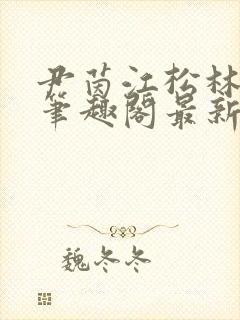 尹茵江松林
笔趣阁最新
魏冬冬